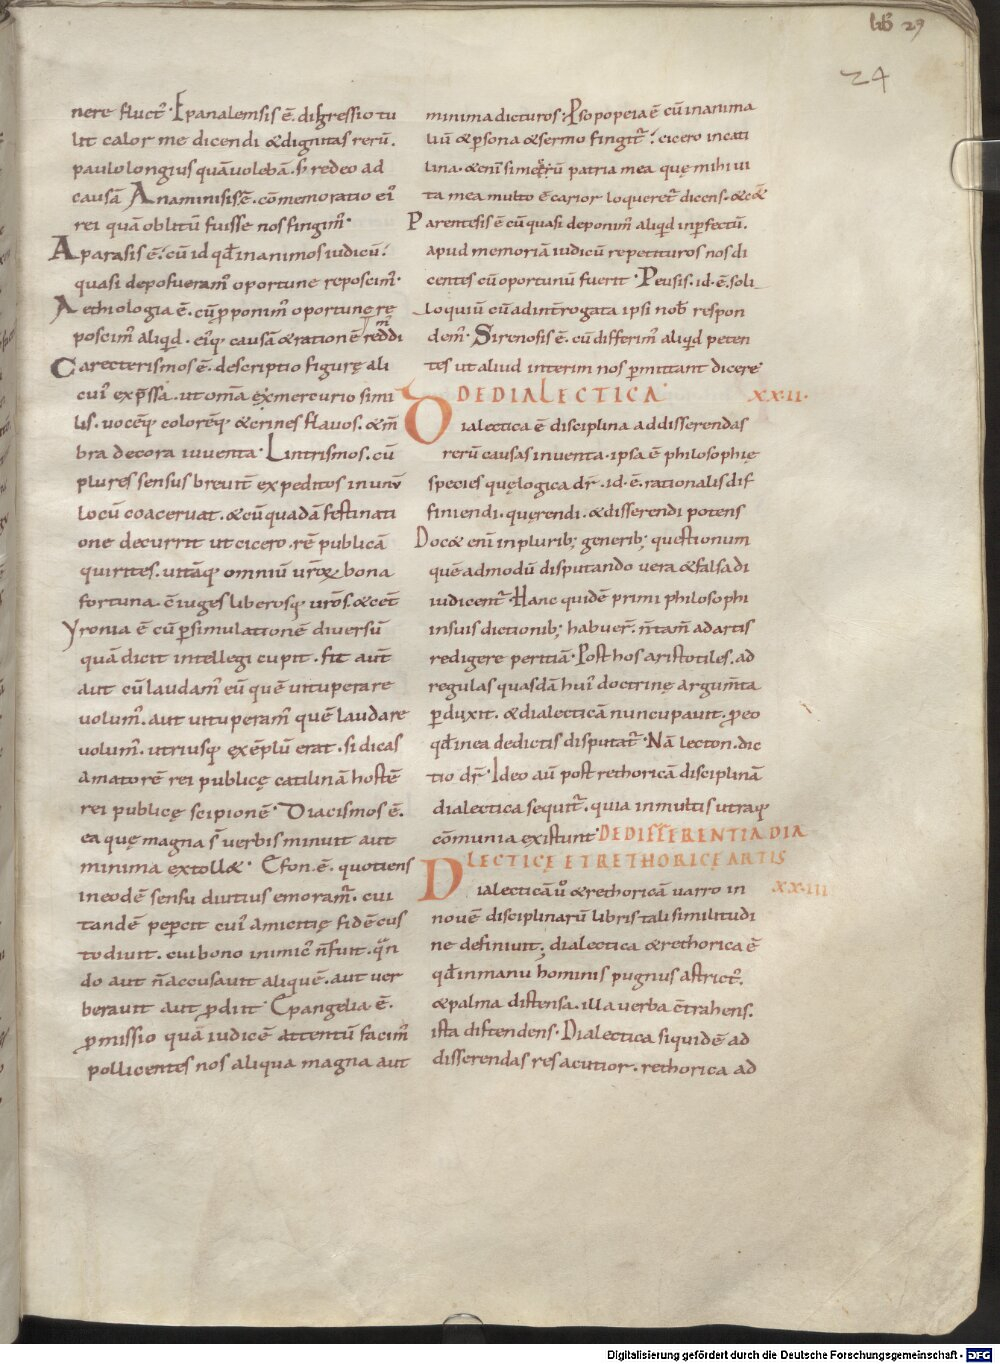 lib 29
24
nere fluct᷒. Epanalemsis ē. digressio tu
lit calor me dicendi &dignitas rerū.
paulo longius quā uolebā. sʒ redeo ad
causā Anaminisis ē. cōmemoratio ei᷒
rei quā oblitū fuisse nos fingim᷒.
Aparasis ē. cū id qđ in animos iudicū.
quasi depo fueram᷒ oportune reposcim᷒.
Aethiologia ē. cū ꝓponim᷒ oportune re
poscim᷒ aliqđ. ei᷒q; causā & ratione redđi
Carecterismos ē. descriptio figurę ali
cui᷒ exp̄ssa. ut omā ex mercurio simi
lis. uocēq; colorēq; &crines flauos. &m̄
bra decora iuuenta. Lintrismos. cū
plures sensus breuit̄ expeditos in unū
locū coaceruat. & cū quadā festinati
one decurrit ut cicero. rē publicā
quirites. uitāq; omniū urōꝝ bona
fortuna c̄iuges liberosq; uros. &cet̄
yronia ē cū p̱simulationē diuersū
quā dicit intellegi cupit. fit aut̄
aut cū laudam᷒ eū quē uituperare
uolum᷒. aut uituperam᷒ quē laudare
uolum᷒. utriusq; exēplū erat. si dicas
amatorē rei publicę catilinā hostē
rei publicę scipionē. Diacismos ē.
ea quę magna s̄ uerbis minuit aut
minima extoll&. Efon. ē. quotiens
in eodē sensu diutius emoram᷒. cui
tandē pepercit cui᷒ amicitię fidē cus
todiuit. cui bono inimic᷒ n̄ fuit. qn̄
do aut n̄ accusauit aliquē. aut uer
berauit aut p̱diit Epangelia ē.
ꝓmissio quā iudicē attentū facim᷒
pollicentes nos aliqua magna aut
minima dicturos; Psopopeia ē cū inanima
liū &p̱sona &sermo fingit᷒. cicero in cati
lina. &eni si mecū patria mea quę mihi ui
ta mea multo ē carior loqueret᷒ dicens. &c&
Parentesis ē cū quasi deponim᷒ aliqđ inp̱fectū.
apud memoriā iudicū repetituros nos di
centes cū oportunū fuerit. Peusis. id. ē. soli
loquiū cū ad int̄rogata ipsi nob̄ respon
dem᷒. Sirenosis ē. cū differim᷒ aliqđ peten
tes ut aliud interim nos p̱mittant dicere
DE DIALECTICA XXII.
Dialectica ē disciplina ad disserendas
rerū causas inuenta. ipsa ē philosophię
species quę logica dr̄. id. ē. rationalis dif
finiendi. querendi. & disserendi potens
Doc& eni in plurib; generib; questionum
quē admodū disputando uera &falsa di
iudicent᷒. Hanc quidē primi philosophi
in suis dictionib; habuer̄. n̄ tam̄ ad artis
redigere peritiā. Post hos aristotiles. ad
regulas quasdā hui᷒ doctrinę argum̄ta
p̱duxit. & dialecticā nuncupauit. ꝓ eo
qđ in ea de dictis disputat᷒. Nā lecton. dic
tio dr̄. Ideo aū post rethoricā disciplinā
dialectica sequit᷒. quia in multis utraq;
cōmunia existunt DE DIFFERENTIA DIA
LECTICĘ ET RETHORICĘ ARTIS
Dialecticā ů & rethoricā uarro in XXIII
nouē disciplinarū libris tali similitudi
ne definiuit; dialectica &rethorica ē
qđ in manu hominis pugnus astrict᷒.
&palma distensa. illa uerba c̄trahens.
ista distendens. Dialectica siquidē ad
disserendas res acutior. rethorica ad
Digitalisierung gefördert durch die Deutsche Forschungsgemeinschaft - DFG